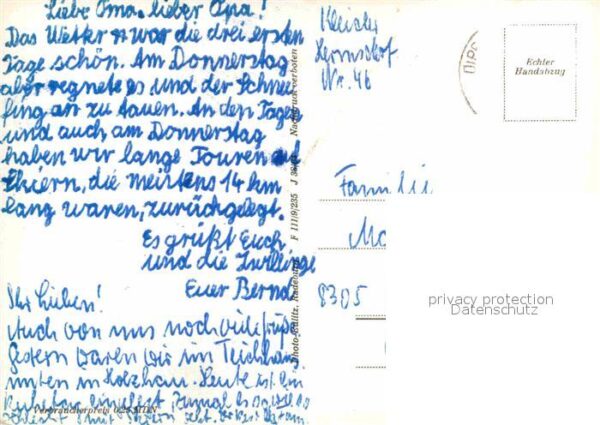 Liebe Oma, lieber Opa!
Das Wetter war die drei ersten
Tage schön. Am Donnerstag
aber regnete es und der Schnee
fing an zu tauen. An den Tagen
und auch am Donnerstag
haben wir lange Touren auf
Skiern, die meistens 14 km
lang waren, zurückgelegt.
Es grüßt Euch
und die Zwillinge
Euer Bernd
Ihr Lieben!
Auch von uns noch viele Grüße
Gestern waren wir im Teichhaus
unten in Holzhau. Heute ist ein
Ruhetag
Verbraucherpreis 0,25 MDN
Photo-
F 111/9/235 J 38
Nachdruck verboten
Hermsdorf
Nr. 46
Echter
Handabzug
Famili
8305
privacy protection
Datenschutz